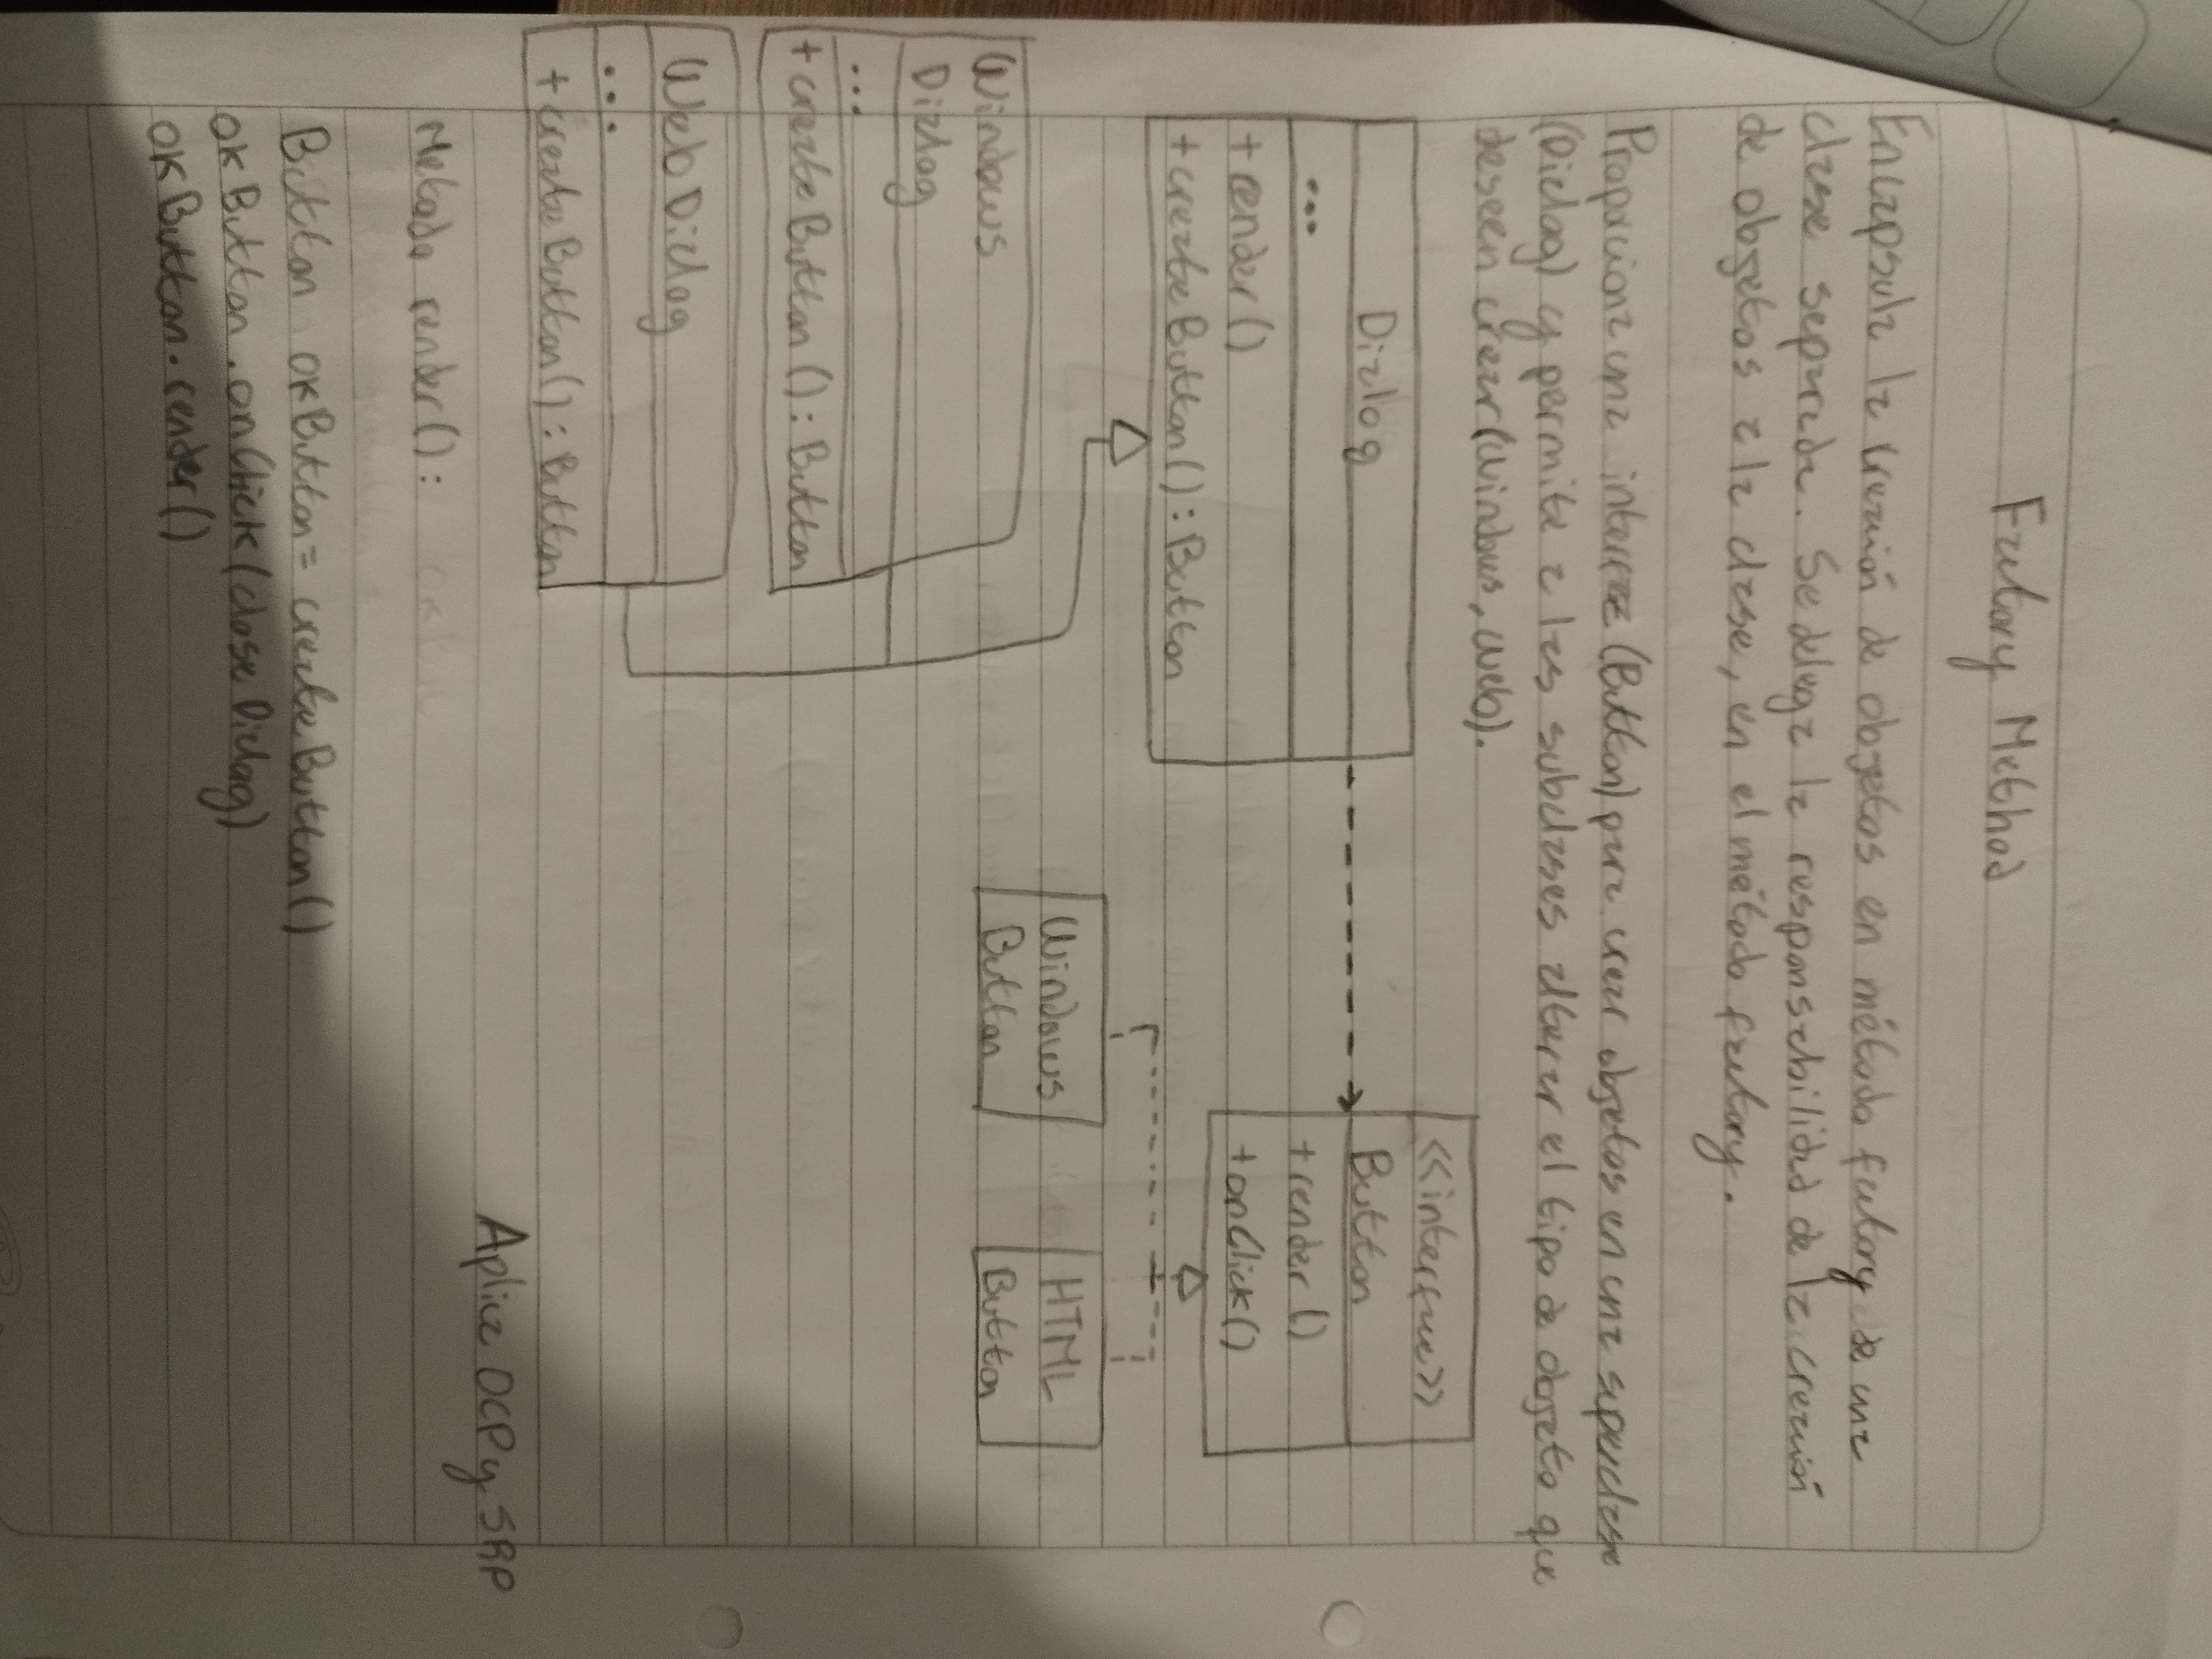 Factory Method
Encapsula la creación de objetos en método factory de una
clase separada. Se delega la responsabilidad de la creación
de objetos a la clase, en el método factory.
Proporciona una interfaz (Button) para crear objetos en una superclase
(Dialog) y permite a las subclases alterar el tipo de objeto que
deseen crear (Windows, web).
Dialog
...
+render()
+createButton(): Button
<<interface>>
Button
+render()
+onClick()
Windows
Dialog
...
+createButton(): Button
Windows
Button
HTML
Button
WebDialog
...
+createButton(): Button
Aplica OCP y SRP
Metodo render():
Button okButton = createButton()
okButton.onClick(closeDialog)
okButton.render()